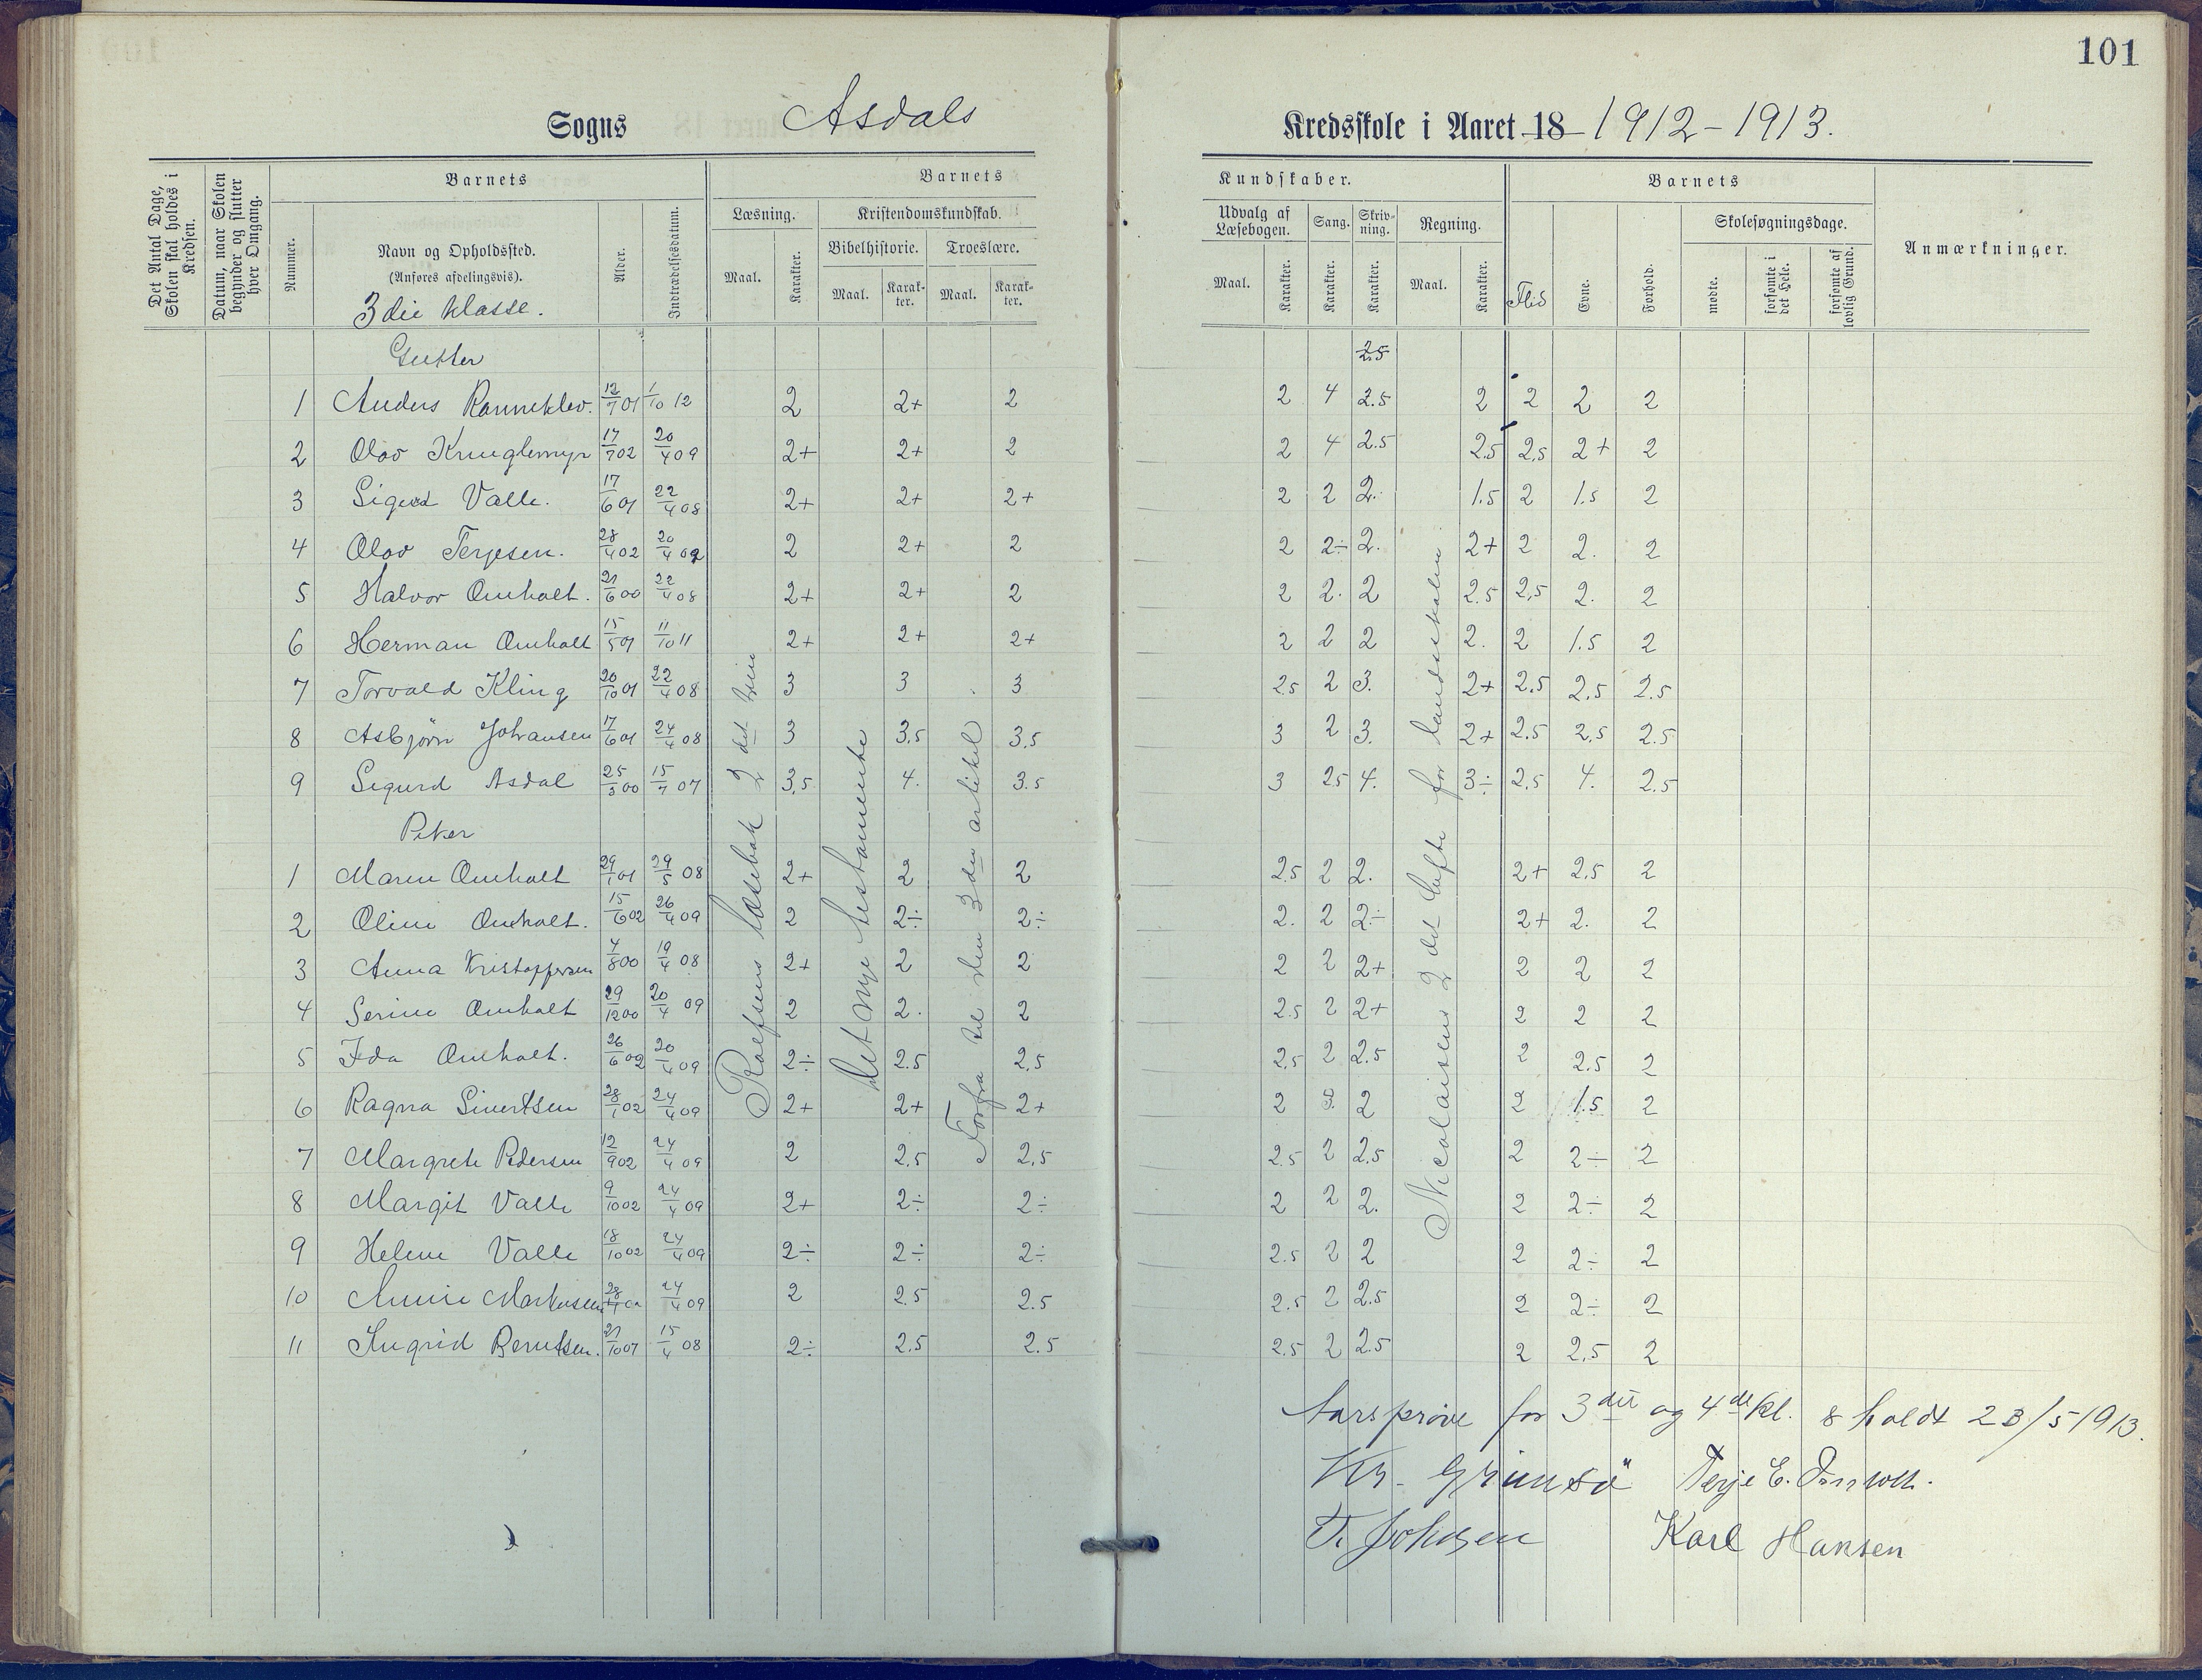 101
Sogns Asdals Kredsskole i Aaret 18 1912-1913.
Det Antal Dage, Skolen skal holdes i Kredsen.
Datum, naar Skolen begynder og slutter hver Omgang.
Barnets
Nummer.
Navn og Opholdssted.
(Anføres afdelingsvis).
3die klasse.
Alder.
Indtrædelsesdatum.
Barnets Kundskaber.
Læsning.
Maal. Karakter.
Kristendomskundskab.
Bibelhistorie. Troeslære.
Maal. Karakter. Maal. Karakter.
Udvalg af Læsebogen. Sang. Skrivning. Regning.
Maal. Karakter. Karakter. Karakter. Maal. Karakter.
Barnets
Flid Evne. Forhold.
Skolesøgningsdage.
mødte. forsømte i det Hele. forsømte af lovlig Grund.
Anmærkninger.
Gutter
2.5
1 Anders Ranneklev. 12/7 01 1/10 12 2 2+ 2 2 4 2.5 2 2 2 2
2 Olav Krunglemyr 17/7 02 20/4 09 2+ 2+ 2 2 4 2.5 2.5 2.5 2+ 2
3 Sigurd Valle. 17/6 01 22/4 08 2+ 2+ 2+ 2 2 2. 1.5 2 1.5 2
4 Olav Terjesen. 28/4 02 20/4 09 2 2+ 2 2 2÷ 2. 2+ 2 2. 2
5 Halvor Omholt. 21/6 00 22/4 08 2+ 2+ 2 2 2. 2 2.5 2,5 2. 2
6 Herman Omholt 15/5 01 11/10 11 2+ 2+ 2+ 2 2 2 2. 2 1.5 2
7 Torvald Kling 20/10 01 22/4 08 3 3 3 2.5 2 3. 2+ 2.5 2.5 2.5
8 Asbjörn Johansen 17/6 01 24/4 08 3 3.5 3.5 3 2 3. 2+ 2.5 2.5 2.5
9 Sigurd Asdal 25/5 00 15/7 07 3,5 4. 3.5 3 2.5 4. 3÷ 2.5 4. 2.5
Piker
1 Maren Omholt 29/1 01 29/5 08 2+ 2 2 2.5 2 2. 2+ 2.5 2
2 Oline Omholt. 15/6 02 26/4 09 2 2÷ 2÷ 2. 2 2÷ 2+ 2. 2
3 Anna Kristoffersen 4/8 00 19/4 08 2+ 2 2 2 2 2+ 2 2 2
4 Serine Omholt 29/12 00 20/4 09 2 2. 2 2.5 2 2+ 2 2 2
5 Ida Omholt. 26/6 02 20/4 09 2÷ 2.5 2.5 2.5 2 2.5 2 2.5 2
6 Ragna Sivertsen 28/1 02 24/4 09 2+ 2+ 2+ 2 2 2 1.5 2
7 Margrete Pedersen 12/9 02 24/4 09 2 2.5 2.5 2.5 2 2.5 2 2÷ 2
8 Margit Valle 9/10 02 24/4 09 2+ 2÷ 2÷ 2 2 2. 2 2÷ 2
9 Helene Valle 18/10 02 24/4 09 2÷ 2÷ 2÷ 2.5 2 2 2 2÷ 2
10 Annie Markussen 24/4 09 2 2.5 2.5 2.5 2 2.5 2 2÷ 2
11 Ingrid Berntsen. 21/10 01 15/4 08 2÷ 2.5 2.5 2.5 2 2.5 2 2.5 2
Rolfsens læsebok 2det trin
Det nye testamente
Forfra til den 3die artikel
Nicolaisens 2det hefte for landsskolen
Aarsprøve for 3die og 4de kl. holdt 23/5 1913.
Kr. Grimsö Terje E. Omholt.
T. Johnsen Karl Hansen